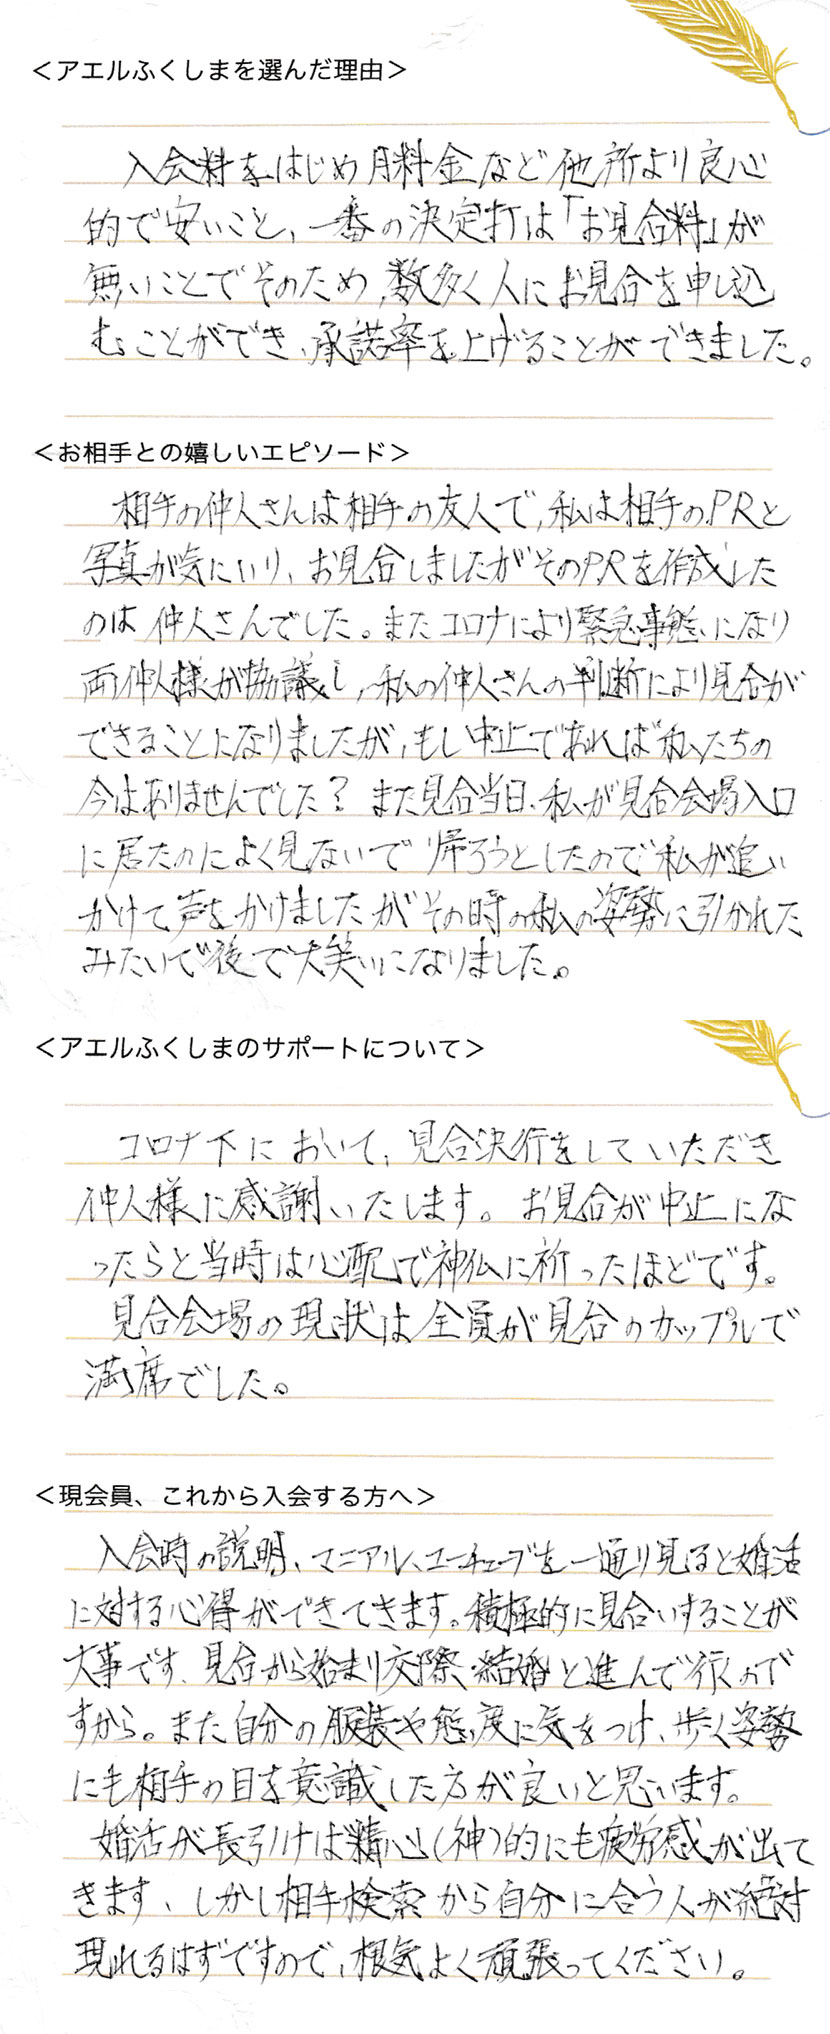 ＜アエルふくしまを選んだ理由＞
入会料をはじめ月料金など他所より良心
的で安いこと、一番の決定打は「お見合料」が
無いことでそのため、数多く人にお見合を申し込
むことができ、承諾率を上げることができました。
＜お相手との嬉しいエピソード＞
相手の仲人さんは相手の友人で、私は相手のPRと
写真が気にいり、お見合しましたがそのPRを作成した
のは仲人さんでした。またコロナにより緊急事態になり
両仲人様が協議し、私の仲人さんの判断により見合が
できることになりましたが、もし中止であれば私たちの
今はありませんでした？また見合当日、私が見合会場入口
に居たのによく見ないで帰ろうとしたので私が追い
かけて声をかけましたがその時の私の姿勢に引かれた
みたいで後で大笑いになりました。
＜アエルふくしまのサポートについて＞
コロナ下において、見合決行をしていただき
仲人様に感謝いたします。お見合が中止にな
ったらと当時は心配で神仏に祈ったほどです。
見合会場の現状は全員が見合のカップルで
満席でした。
＜現会員、これから入会する方へ＞
入会時の説明、マニアル、ユーチューブを一通り見ると婚活
に対する心得ができてきます。積極的に見合いすることが
大事です、見合から始まり交際、結婚と進んで行くので
すから。また自分の服装や態度に気をつけ、歩く姿勢
にも相手の目を意識した方が良いと思います。
婚活が長引けば精心(神)的にも疲労感が出て
きます、しかし相手検索から自分に合う人が絶対
現れるはずですので、根気よく頑張ってください。